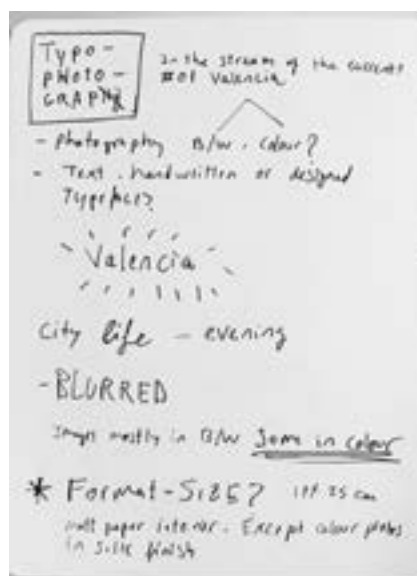 Typo-
photo-
GRAPHY
In the stream of the current
#01 Valencia
- photography B/W . Colour?
- Text . handwritten or designed
Typefaces?
Valencia
City life - evening
- BLURRED
Images mostly in B/W Some in colour
* Format - Size? 25 cm
matt paper interior. Except colour photos
in silk finish